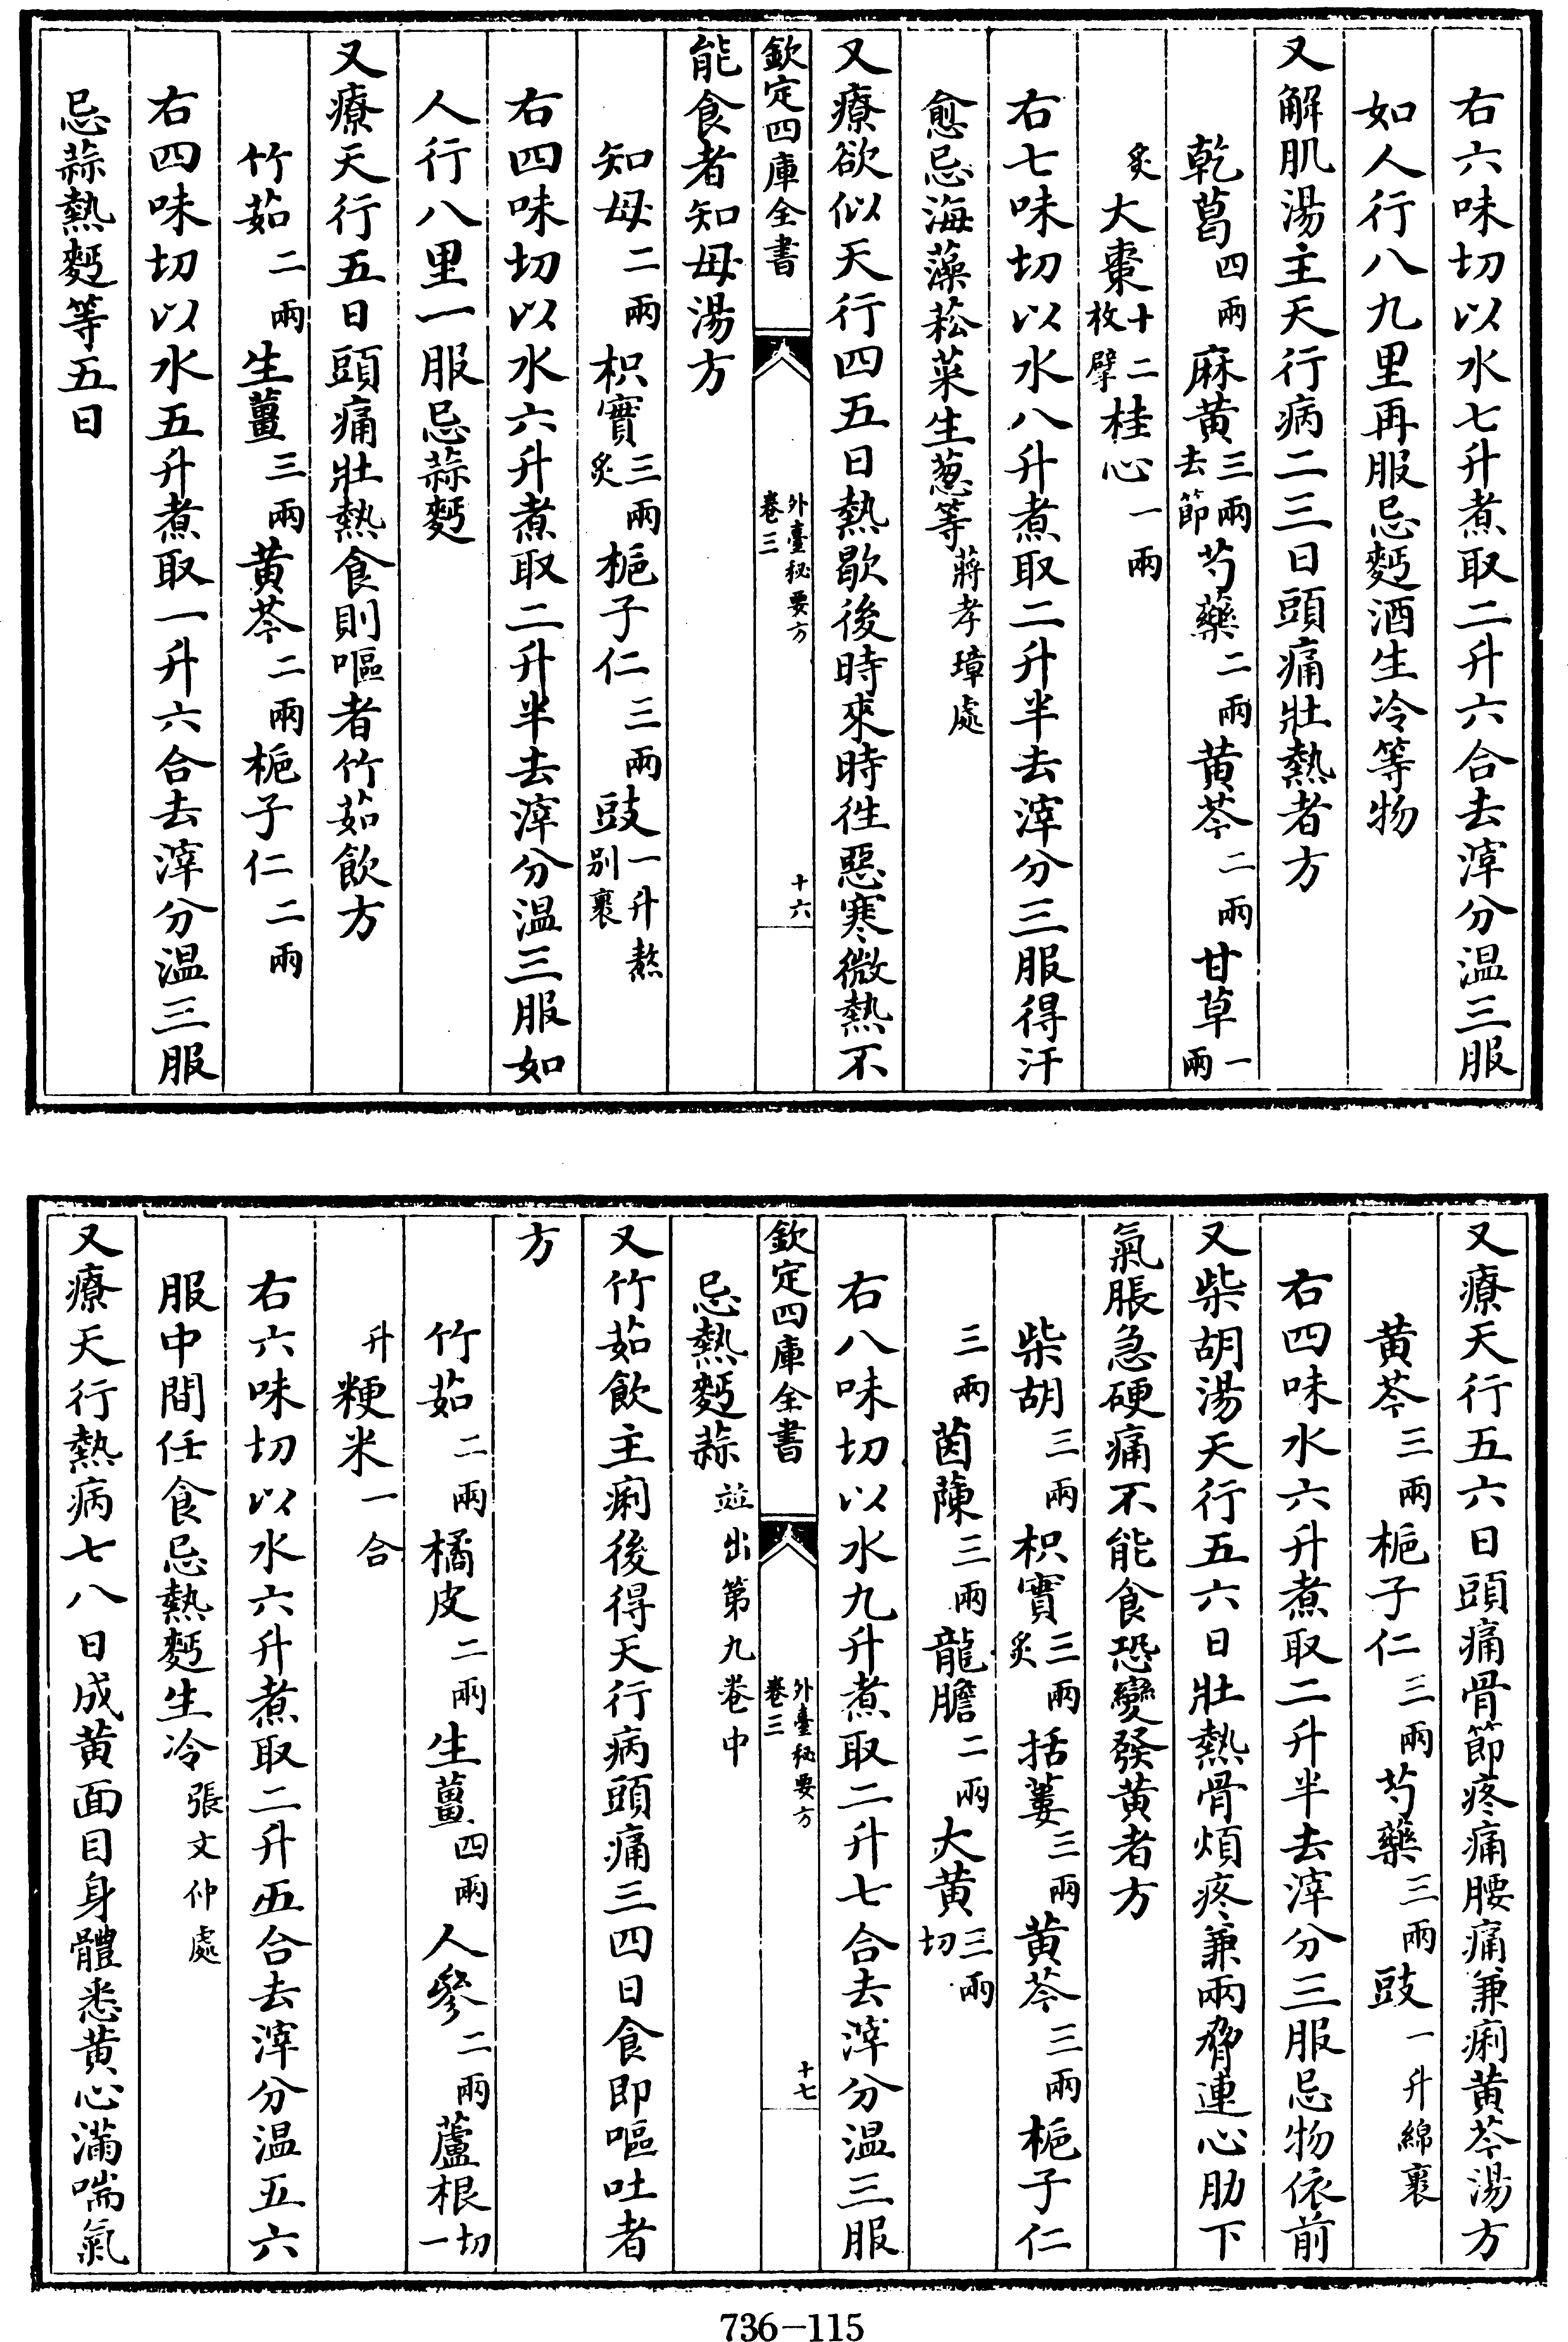 右六味切以水七升煮取二升六合去滓分温三服
如人行八九里再服忌麪酒生冷等物
又解肌湯主天行病二三日頭痛壯熱者方
乾葛四兩麻黄三兩去節芍藥二兩黄芩二兩甘草一兩
炙大棗十二枚擘桂心一兩
右七味切以水八升煮取二升半去滓分三服得汗
愈忌海藻菘菜生葱等蔣孝璋處
又療欲似天行四五日熱歇後時來時徃惡寒微熱不
欽定四庫全書
外臺秘要方
卷三
十六
能食者知母湯方
知母二兩枳實三兩炙梔子仁三兩豉一升熬别裹
右四味切以水六升煮取二升半去滓分温三服如
人行八里一服忌蒜麪
又療天行五日頭痛壯熱食則嘔者竹茹飲方
竹茹二兩生薑三兩黄芩二兩梔子仁二兩
右四味切以水五升煮取一升六合去滓分温三服
忌蒜熱麪等五日
又療天行五六日頭痛骨節疼痛腰痛兼痢黄芩湯方
黄芩三兩梔子仁三兩芍藥三兩豉一升綿裹
右四味水六升煮取二升半去滓分三服忌物依前
又柴胡湯天行五六日壯熱骨煩疼兼兩脅連心肋下
氣脹急硬痛不能食恐變發黄者方
柴胡三兩枳實三兩炙括蔞三兩黄芩三兩梔子仁
三兩茵蔯三兩龍膽二兩大黄三兩切
右八味切以水九升煮取二升七合去滓分温三服
欽定四庫全書
外臺秘要方
卷三
十七
忌熱麪蒜並出第九卷中
又竹茹飲主痢後得天行病頭痛三四日食即嘔吐者
方
竹茹二兩橘皮二兩生薑四兩人參二兩蘆根切一
升粳米一合
右六味切以水六升煮取二升五合去滓分温五六
服中間任食忌熱麪生冷張文仲處
又療天行熱病七八日成黄面目身體悉黄心滿喘氣
736-115